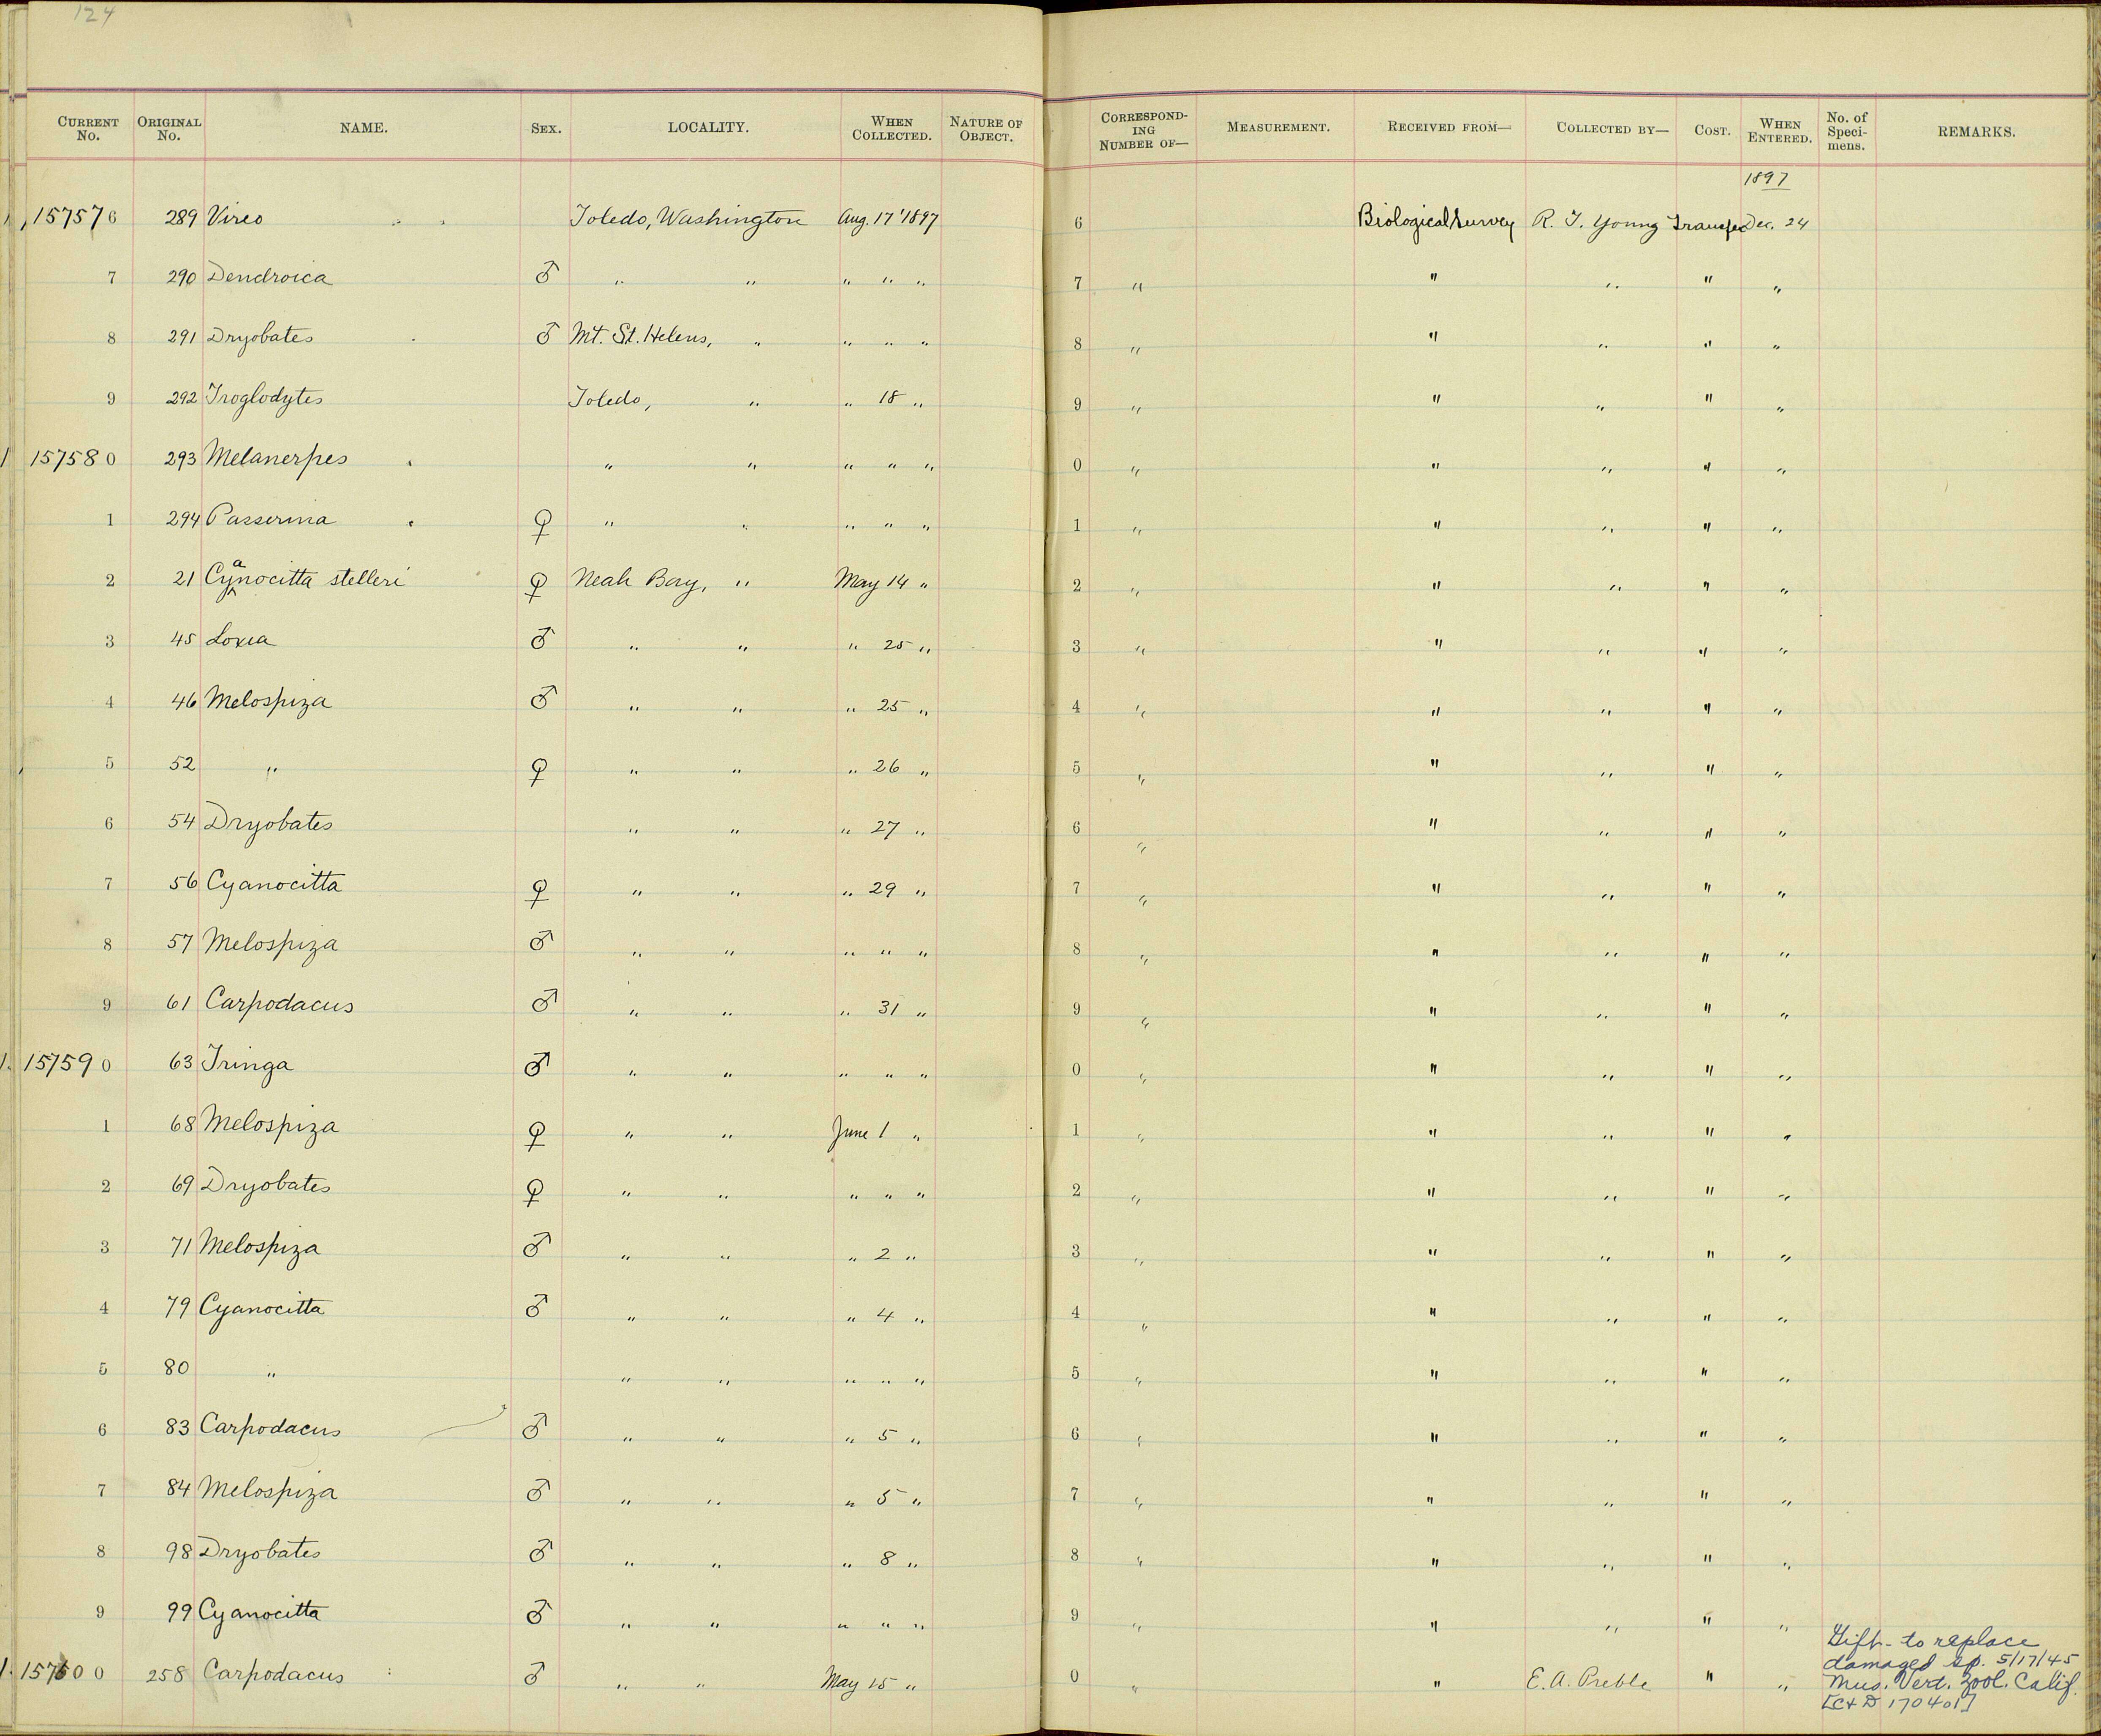 124
CURRENT No. ORIGINAL No. NAME. SEX. LOCALITY. WHEN COLLECTED. NATURE OF OBJECT. CORRESPONDING NUMBER OF— MEASUREMENT. RECEIVED FROM— COLLECTED BY— COST. WHEN ENTERED. No. of Specimens. REMARKS.
1897
157576 289 Vireo Toledo, Washington Aug. 17 '1897 6 Biological Survey R. T. Young Transfer Dec. 24
7 290 Dendroica ♂ " " " " " 7 " " " " "
8 291 Dryobates ♂ Mt. St. Helens, " " " " 8 " " " " "
9 292 Troglodytes Toledo, " " 18 " 9 " " " " "
157580 293 Melanerpes " " " " " 0 " " " " "
1 294 Passerina ♀ " " " " " 1 " " " " "
2 21 Cyanocitta stelleri ♀ Neah Bay, " May 14 " 2 " " " " "
3 45 Loxia ♂ " " " 25 " 3 " " " " "
4 46 Melospiza ♂ " " " 25 " 4 " " " " "
5 52 " ♀ " " " 26 " 5 " " " " "
6 54 Dryobates " " " 27 " 6 " " " " "
7 56 Cyanocitta ♀ " " " 29 " 7 " " " " "
8 57 Melospiza ♂ " " " " " 8 " " " " "
9 61 Carpodacus ♂ " " " 31 " 9 " " " " "
157590 63 Tringa ♂ " " " " " 0 " " " " "
1 68 Melospiza ♀ " " June 1 " 1 " " " " "
2 69 Dryobates ♀ " " " " " 2 " " " " "
3 71 Melospiza ♂ " " " 2 " 3 " " " " "
4 79 Cyanocitta ♂ " " " 4 " 4 " " " " "
5 80 " " " " " " 5 " " " " "
6 83 Carpodacus ♂ " " " 5 " 6 " " " " "
7 84 Melospiza ♂ " " " 5 " 7 " " " " "
8 98 Dryobates ♂ " " " 8 " 8 " " " " "
9 99 Cyanocitta ♂ " " " " " 9 " " " " "
157600 258 Carpodacus ♂ " " May 15 " 0 " " E. A. Preble " "
Gift - to replace
damaged sp. 5/17/45
Mus. Vert. Zool. Calif.
[C & D 170401]